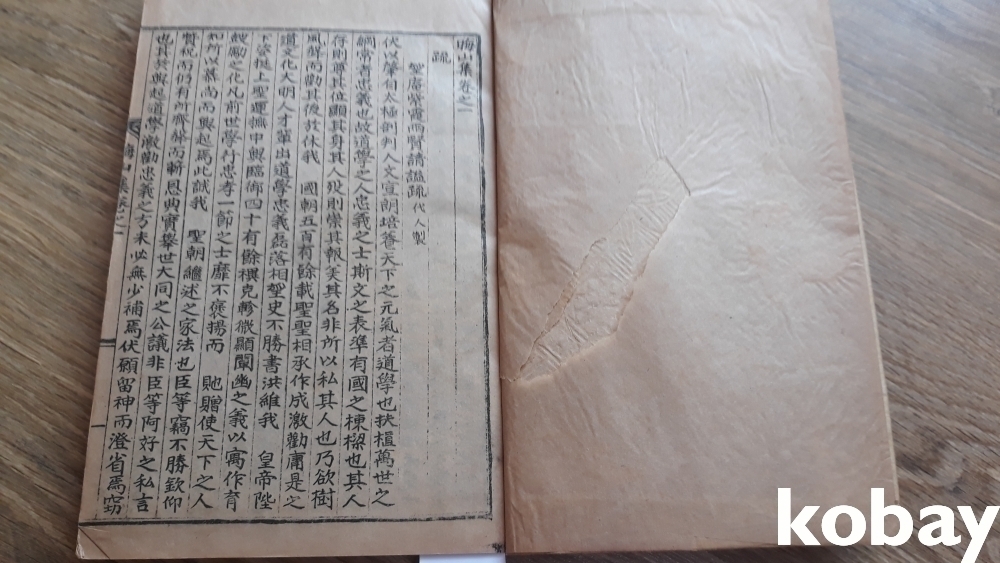 晦山集卷之一
疏
庵紫霞兩賢請諡疏 代人製
伏以肇自太極剖判人文宣朗培養天下之元氣者道學也扶植萬世之
綱常者忠義也故道學之人忠義之士斯文之表準有國之棟樑也其人
存則尊其位顯其身其人歿則崇其報美其名非所以私其人也乃欲樹
風聲而勸其後於休我 國朝五百有餘載聖聖相承作成激勸庸是
道文化大明人才輩出道學忠義磊落相望史不勝書洪維我 皇帝陛
下姿挺上聖運撫中興臨御四十有餘禩克軫微顯闡幽之義以寓作育
鼓勵之化凡前世學行忠孝一節之士靡不褒揚而 貤贈使天下之人
知所以慕尚而興起焉此誠我 聖朝繼述之家法也臣等竊不勝欽仰
贊祝而仍有所齊籲而蘄恩典實擧世大同之公議非臣等阿好之私言
也其於興起道學激勸忠義之方未必無少補焉伏願留神而澄省焉窃
晦山集卷之一
kobay